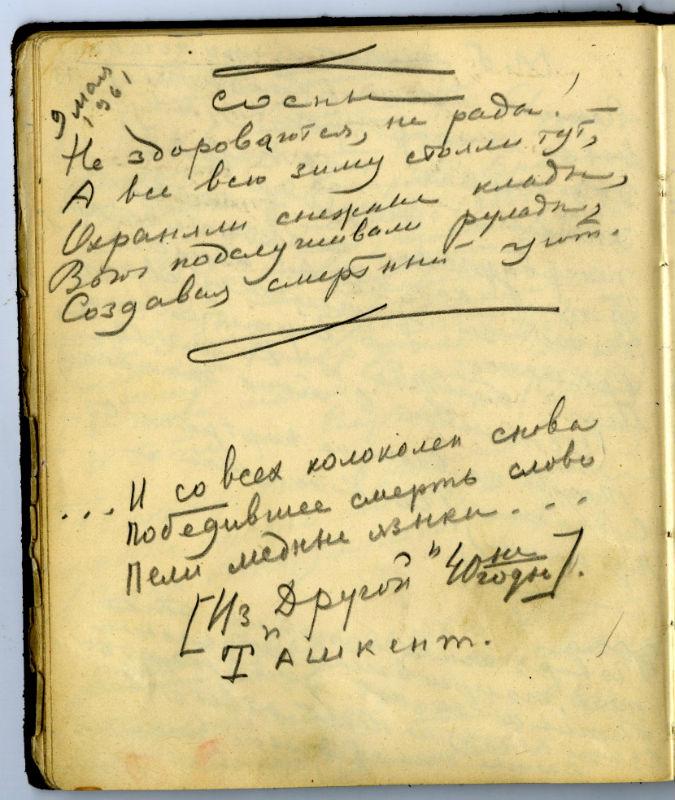 9 мая
1961
Сосны
Не здороваются, не рады!
А все всю зиму стояли тут,
Охраняли снежные клады,
Вьюг подслушивали рулады,
Создавая смертный уют.
... И со всех колоколен снова
Победившее смерть слово
Пели медные языки...
[Из „Другой" 40ые годы].
Ташкент.